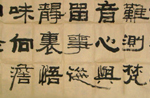 難測梵
音心
留事
靜裏悟
味向澹